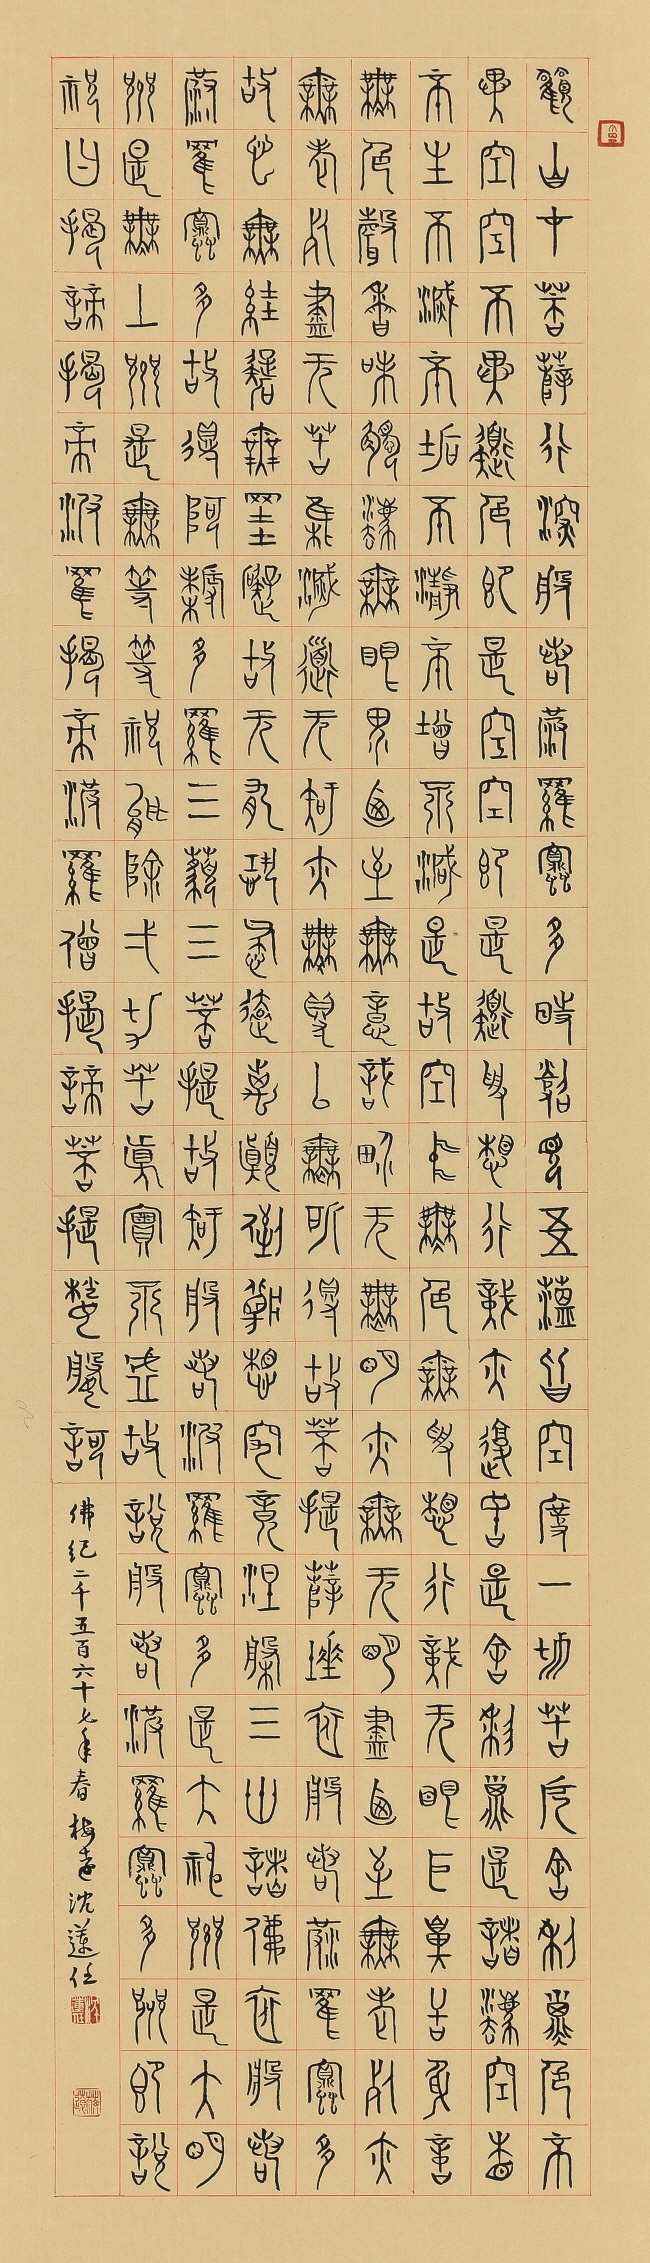 觀自在菩薩行深般若波羅蜜多時照見五蘊皆空度一切苦厄舍利子色不
異空空不異色色即是空空即是色受想行識亦復如是舍利子是諸法空相
不生不滅不垢不淨不增不減是故空中無色無受想行識無眼耳鼻舌身意
無色聲香味觸法無眼界乃至無意識界無無明亦無無明盡乃至無老死亦
無老死盡无苦集滅道无智亦無得以無所得故菩提薩埵依般若波羅蜜多
故心無罣礙無罣礙故无有恐怖遠離顛倒夢想究竟涅槃三世諸佛依般若
波羅蜜多故得阿耨多羅三藐三菩提故知般若波羅蜜多是大神咒是大明
咒是無上咒是無等等咒能除一切苦真實不虛故說般若波羅蜜多咒即說
咒曰揭諦揭帝波羅揭帝波羅僧揭諦菩提娑婆訶
佛紀二千五百六十七年春 梅遠沈蓮任